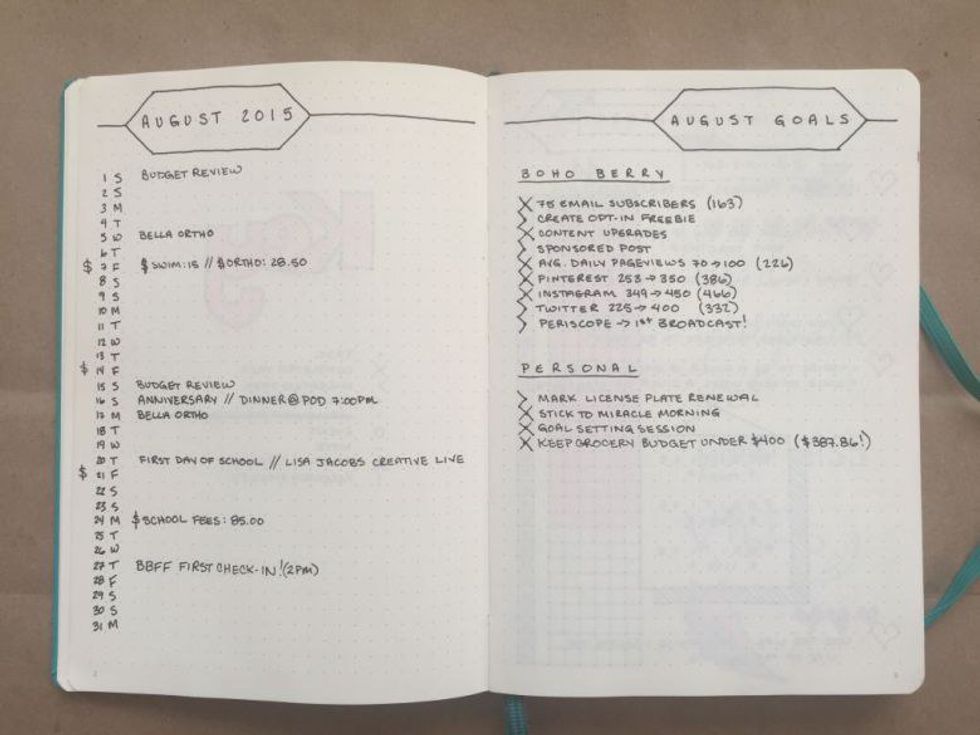 AUGUST 2015
1 S BUDGET REVIEW
2 S
3 M
4 T
5 W BELLA ORTHO
6 T
$ 7 F $ SWIM: 15 // $ ORTHO: 28.50
8 S
9 S
10 M
11 T
12 W
13 T
$ 14 F
15 S BUDGET REVIEW
16 S ANNIVERSARY // DINNER @ POD 7:00PM
17 M BELLA ORTHO
18 T
19 W
20 T FIRST DAY OF SCHOOL // LISA JACOBS CREATIVE LIVE
$ 21 F
22 S
23 S
24 M $ SCHOOL FEES: 85.00
25 T
26 W
27 T BBFF FIRST CHECK-IN! (2PM)
28 F
29 S
30 S
31 M
AUGUST GOALS
BOHO BERRY
X 75 EMAIL SUBSCRIBERS (163)
> CREATE OPT-IN FREEBIE
X CONTENT UPGRADES
> SPONSORED POST
X AVG. DAILY PAGEVIEWS 70 → 100 (226)
X PINTEREST 253 → 350 (386)
X INSTAGRAM 349 → 450 (466)
> TWITTER 225 → 400 (332)
> PERISCOPE → 1st BROADCAST!
PERSONAL
> MARK LICENSE PLATE RENEWAL
X STICK TO MIRACLE MORNING
X GOAL SETTING SESSION
X KEEP GROCERY BUDGET UNDER $400 ($387.86!)